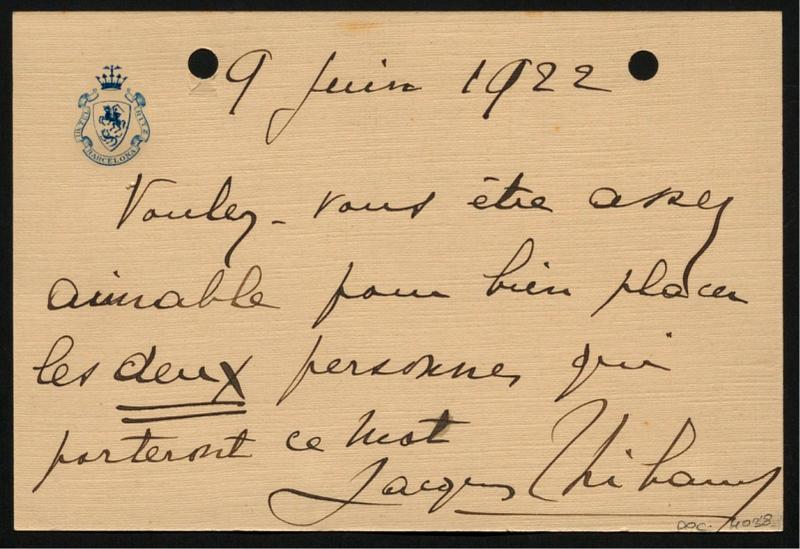 9 Juin 1922
HOTEL RITZ
BARCELONA
Voulez-vous être assez
aimable pour bien placer
les deux personnes qui
porteront ce mot
Jacques Thibaud
DOC. 4038